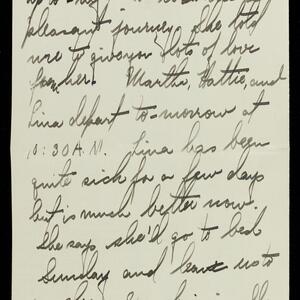 pleasant journey. She told
me to give you lots of love
for her. Martha, Hattie, and
Lina depart to-morrow at
10:30 A.M. Lina has been
quite sick for a few days
but is much better now.
She says, she'd go to bed
Sunday and leave us to